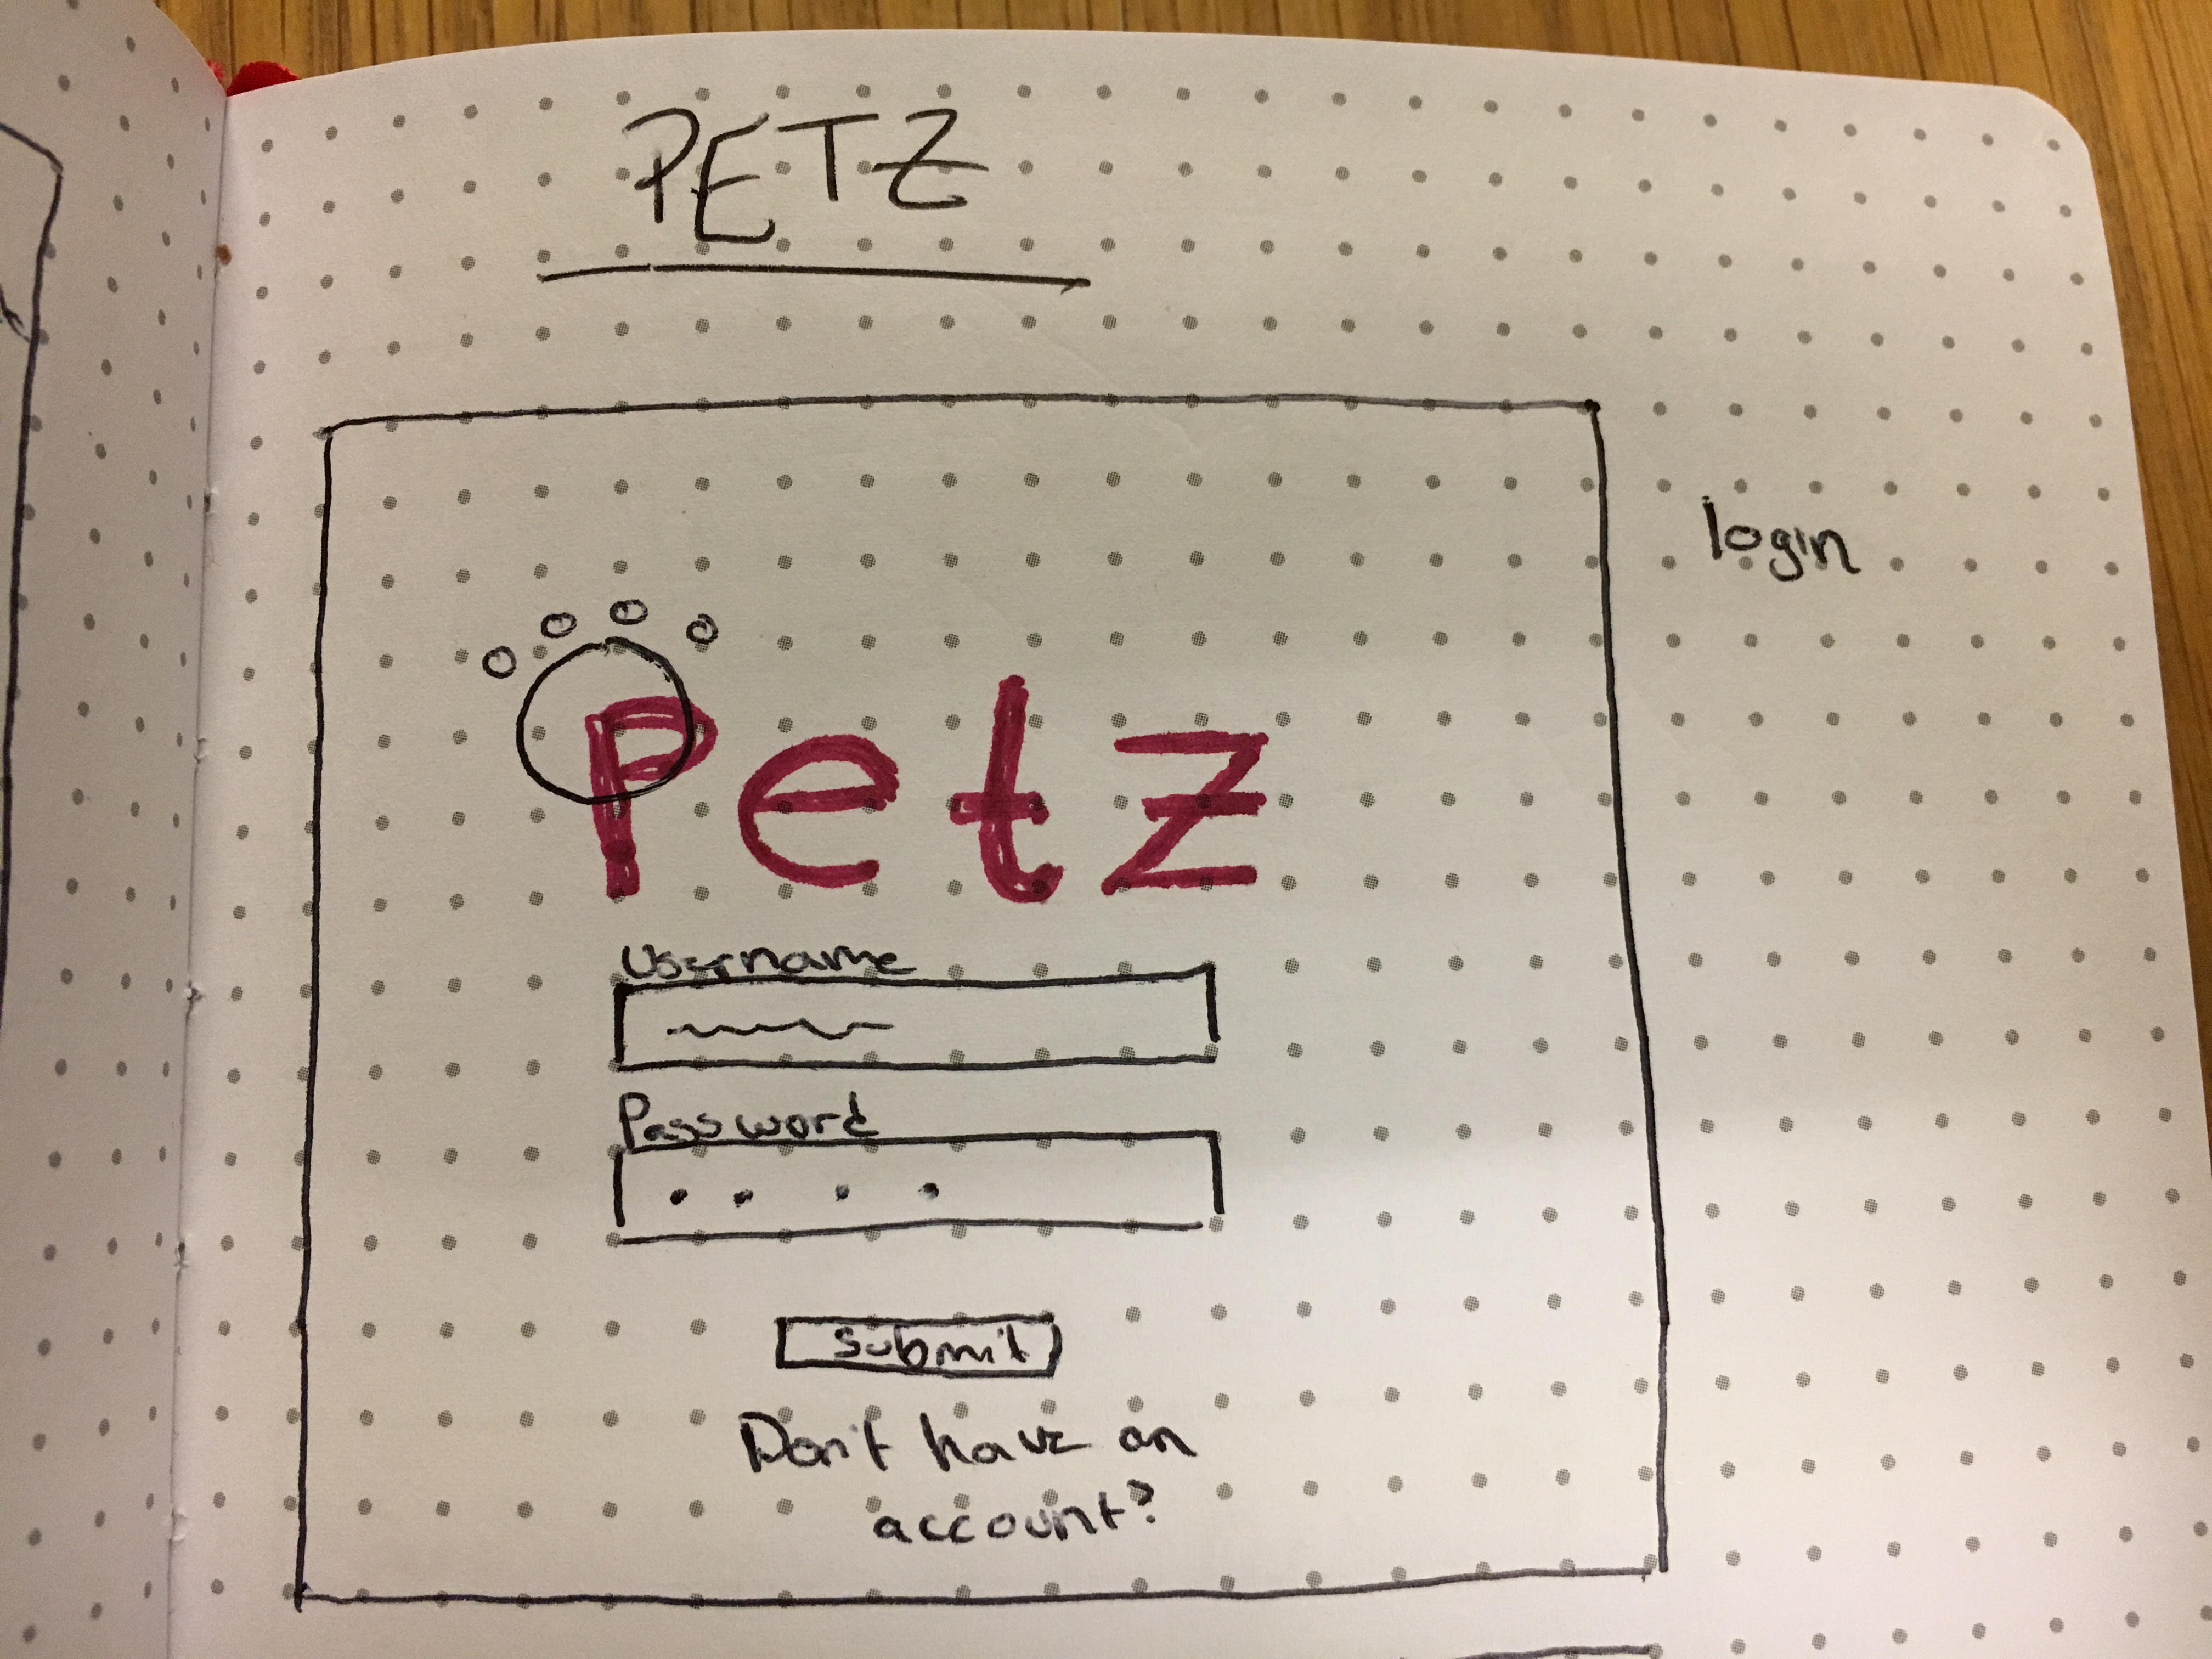 PETZ
login
Petz
Username
Password
submit
Don't have an
account?